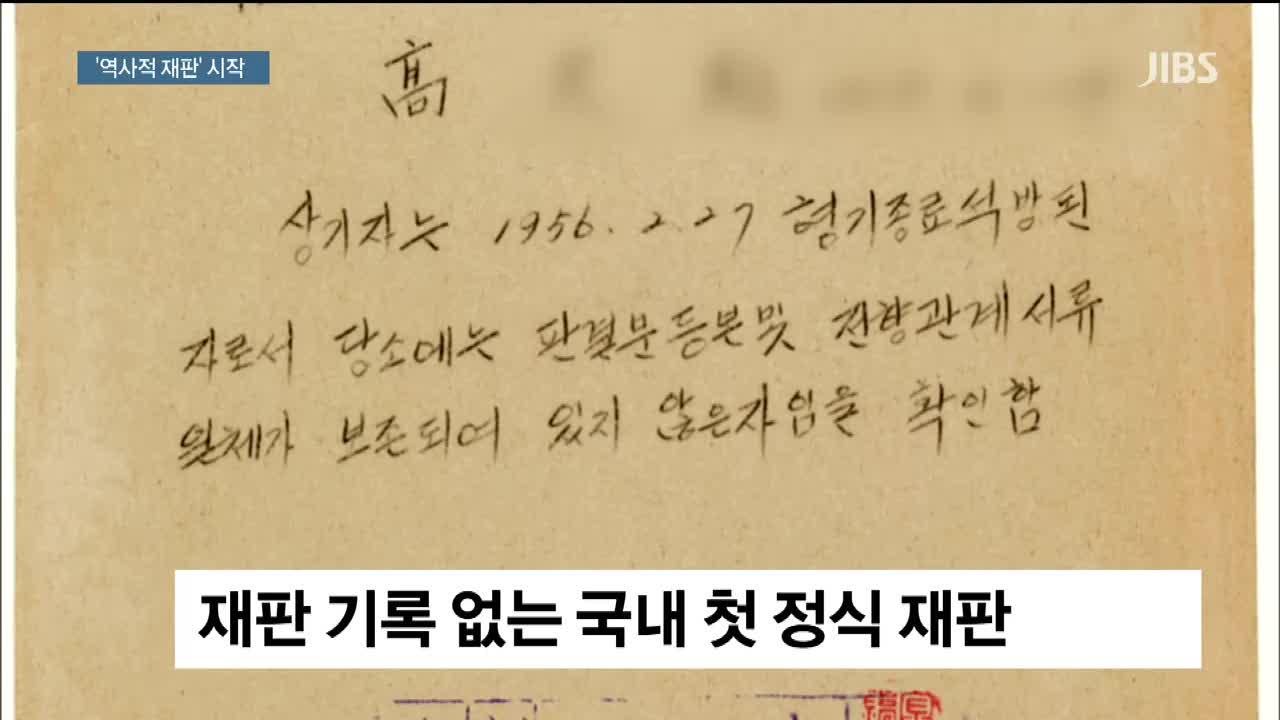 '역사적 재판' 시작
JIBS
高
상기자는 1956. 2. 27 형기종료석방된
자로서 당소에는 판결문등본및 전향관계서류
일체가 보존되여 있지 않은자임을 확인함
재판 기록 없는 국내 첫 정식 재판